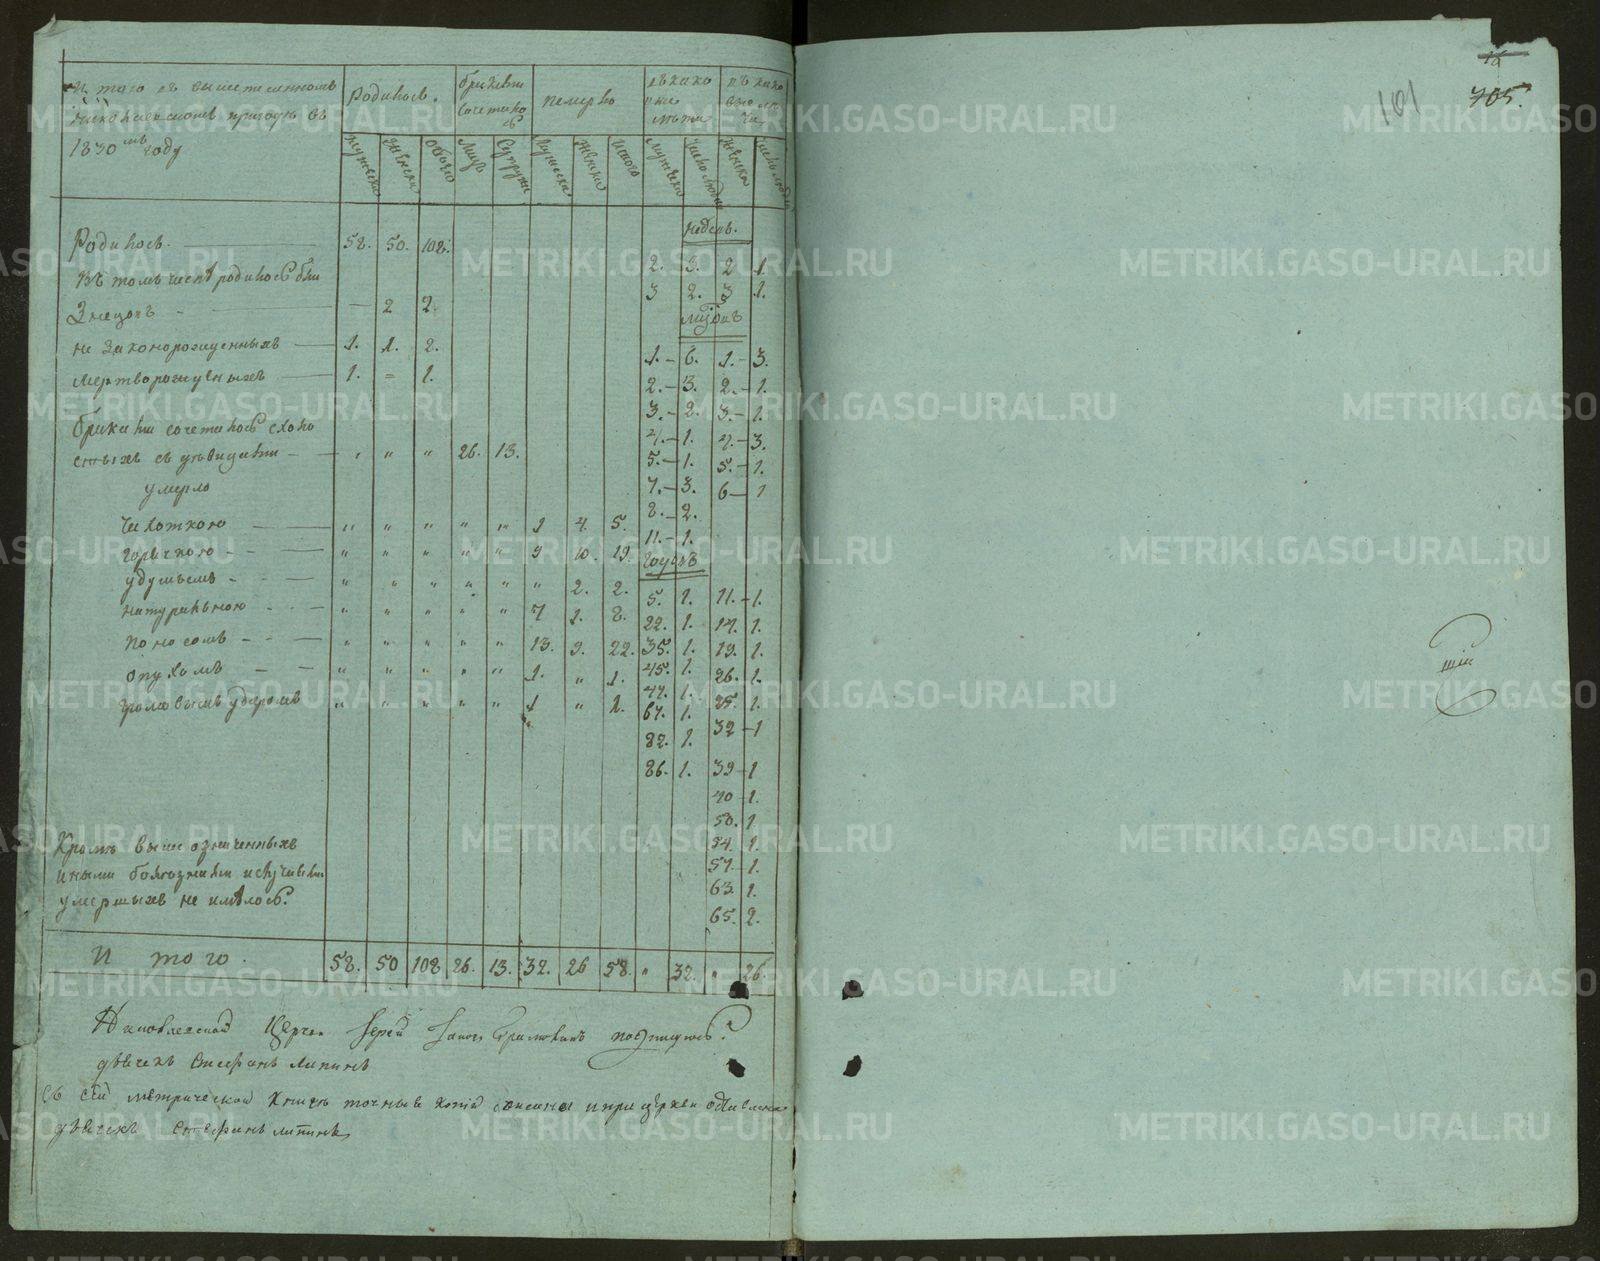 Итого въ вышеписанномъ
Николаевскомъ приходѣ въ
1830мъ году
Родилось.
браками сочеталось
померло
въ како
въ како
Мужеска Женска Обоего Лицъ Супруж Мужеска Женска Итого Мужеска число людей Женска число людей
недель.
Родилось. 58. 50. 108.
2. 3. 2 1.
въ томъ числѣ родилось бли
3 2. 3 1.
знецовъ - 2 2.
месяцовъ
не законорожденныхъ 1. 1. 2.
1. - 6. 1. - 3.
мертворожденныхъ 1. = 1.
2. - 3. 2. - 1.
3. - 2. 3. - 1.
браками сочеталось
4. - 1. 4. - 3.
съ дѣвицами " " " 26. 13.
5. - 1. 5. - 1.
7. - 3. 6 - 1
умерло
8. - 2.
чихоткою " " " " " 1 4. 5.
11. - 1.
горячкою " " " " " 9 10. 19.
годовъ
удушьемъ " " " " " " 2. 2.
5. 1. 11. - 1.
натуральною " " " " " 7 1. 8.
22. 1. 17. 1.
поносомъ " " " " " 13. 9. 22.
35. 1. 19. 1.
45. 1. 26. 1.
опухомъ " " " " " 1. " 1.
47. 1. 25. 1.
громовымъ ударомъ " " " " " 1 " 1.
67. 1. 32 - 1
82. 1.
86. 1. 39 - 1
40 - 1.
50. 1
54. 1.
57. - 1.
63. 1.
65. 2.
Кромѣ выше означенныхъ
иными болѣзнями и случаями
умершихъ не имѣлось.
Итого. 58. 50 108 26. 13. 32. 26 58. " 32. " 26.
Николаевской Церкви Іерей подписуюсь.
дьячекъ Стефанъ Липинъ
Съ сей метрической книги точныя копіи списаны и при церкви оставлены
дьячекъ Стефанъ Липинъ
101
705.
шій
METRIKI.GASO-URAL.RU